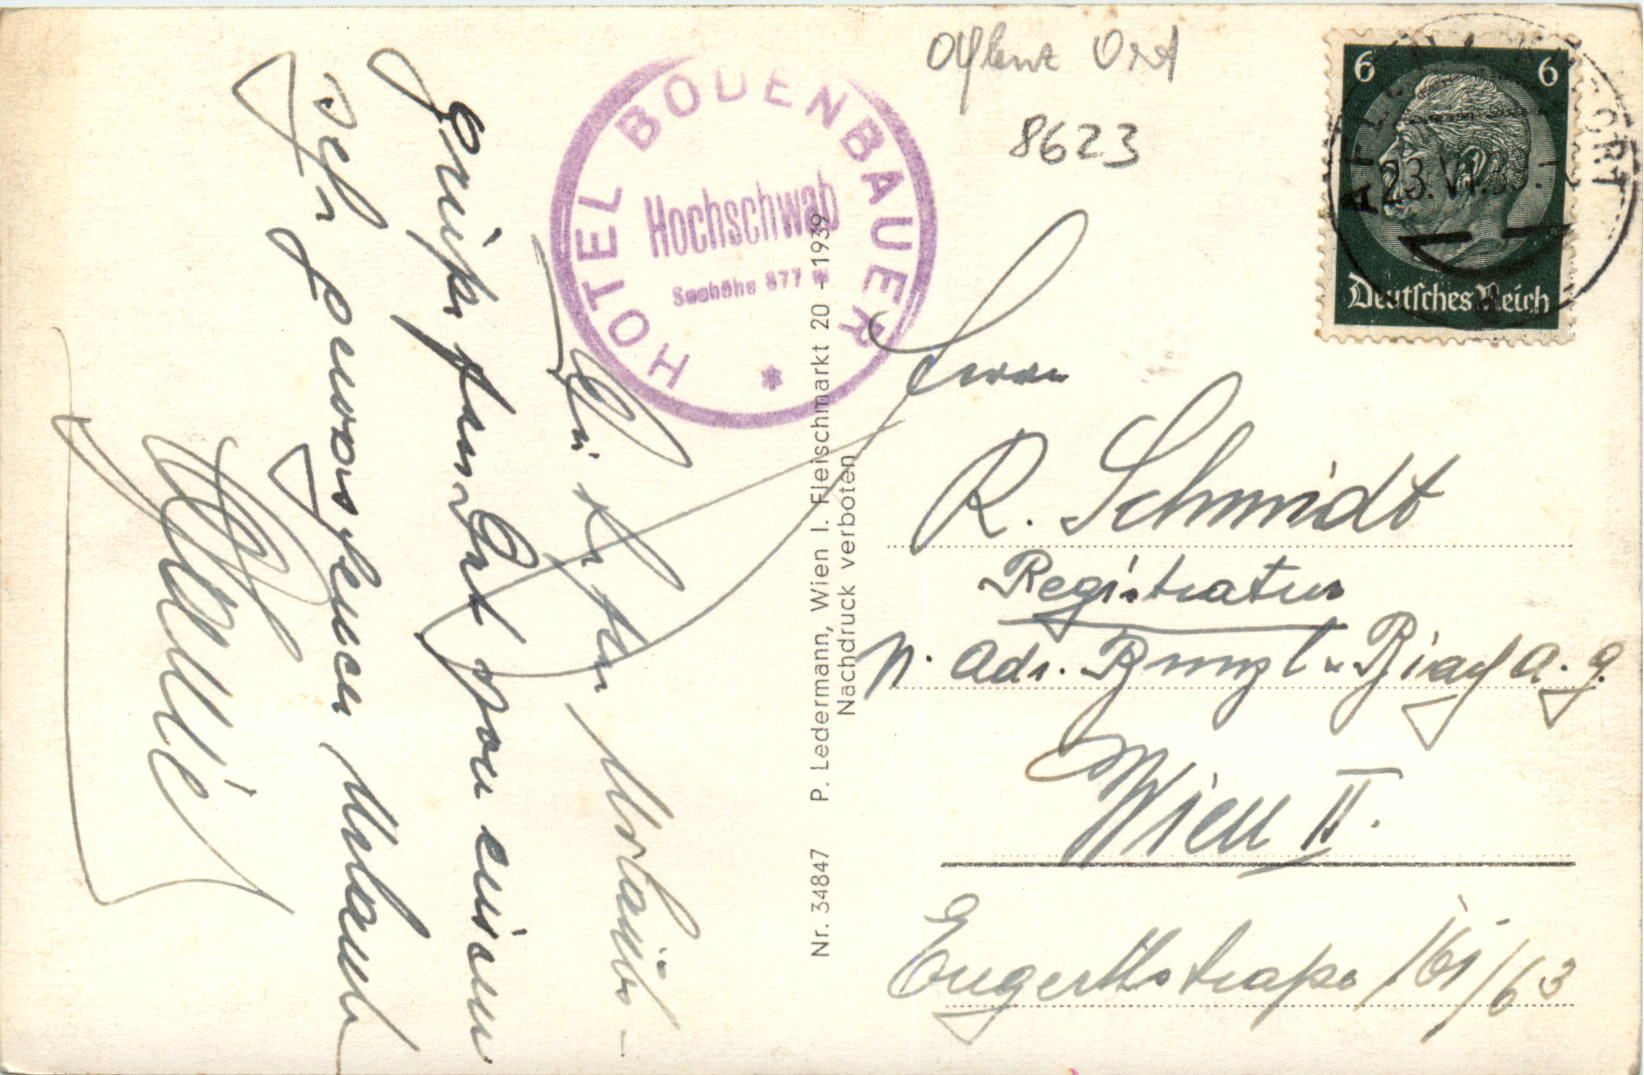 Die besten Urlaubs-
grüße sendet von einem
sehr genossenen Urlaub
HOTEL BODENBAUER
Hochschwab
Seehöhe 877 m
*
Nr. 34847 P. Ledermann, Wien I. Fleischmarkt 20 - 1939
Nachdruck verboten
Aflenz Ort
8623
6 6
Deutsches Reich
23. VI. 39.
Herrn
R. Schmidt
Registratur
Bunzl u. Biach A. G.
Wien II.
Engerthstraße 161/63